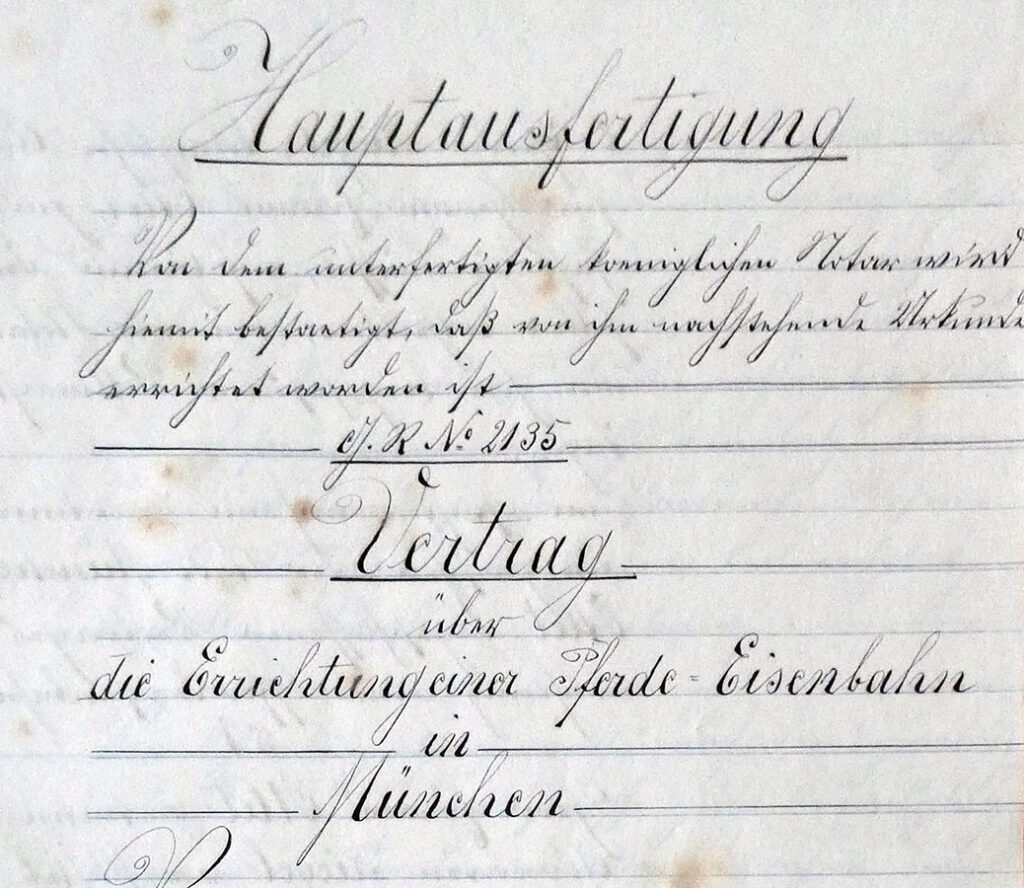 Hauptausfertigung
Von dem unterfertigten koeniglichen Notar wird
hiemit bestaetigt, daß von ihm nachstehende Urkunde
errichtet worden ist
G. R № 2135
Vertrag
über
die Errichtung einer Pferde=Eisenbahn
in
München